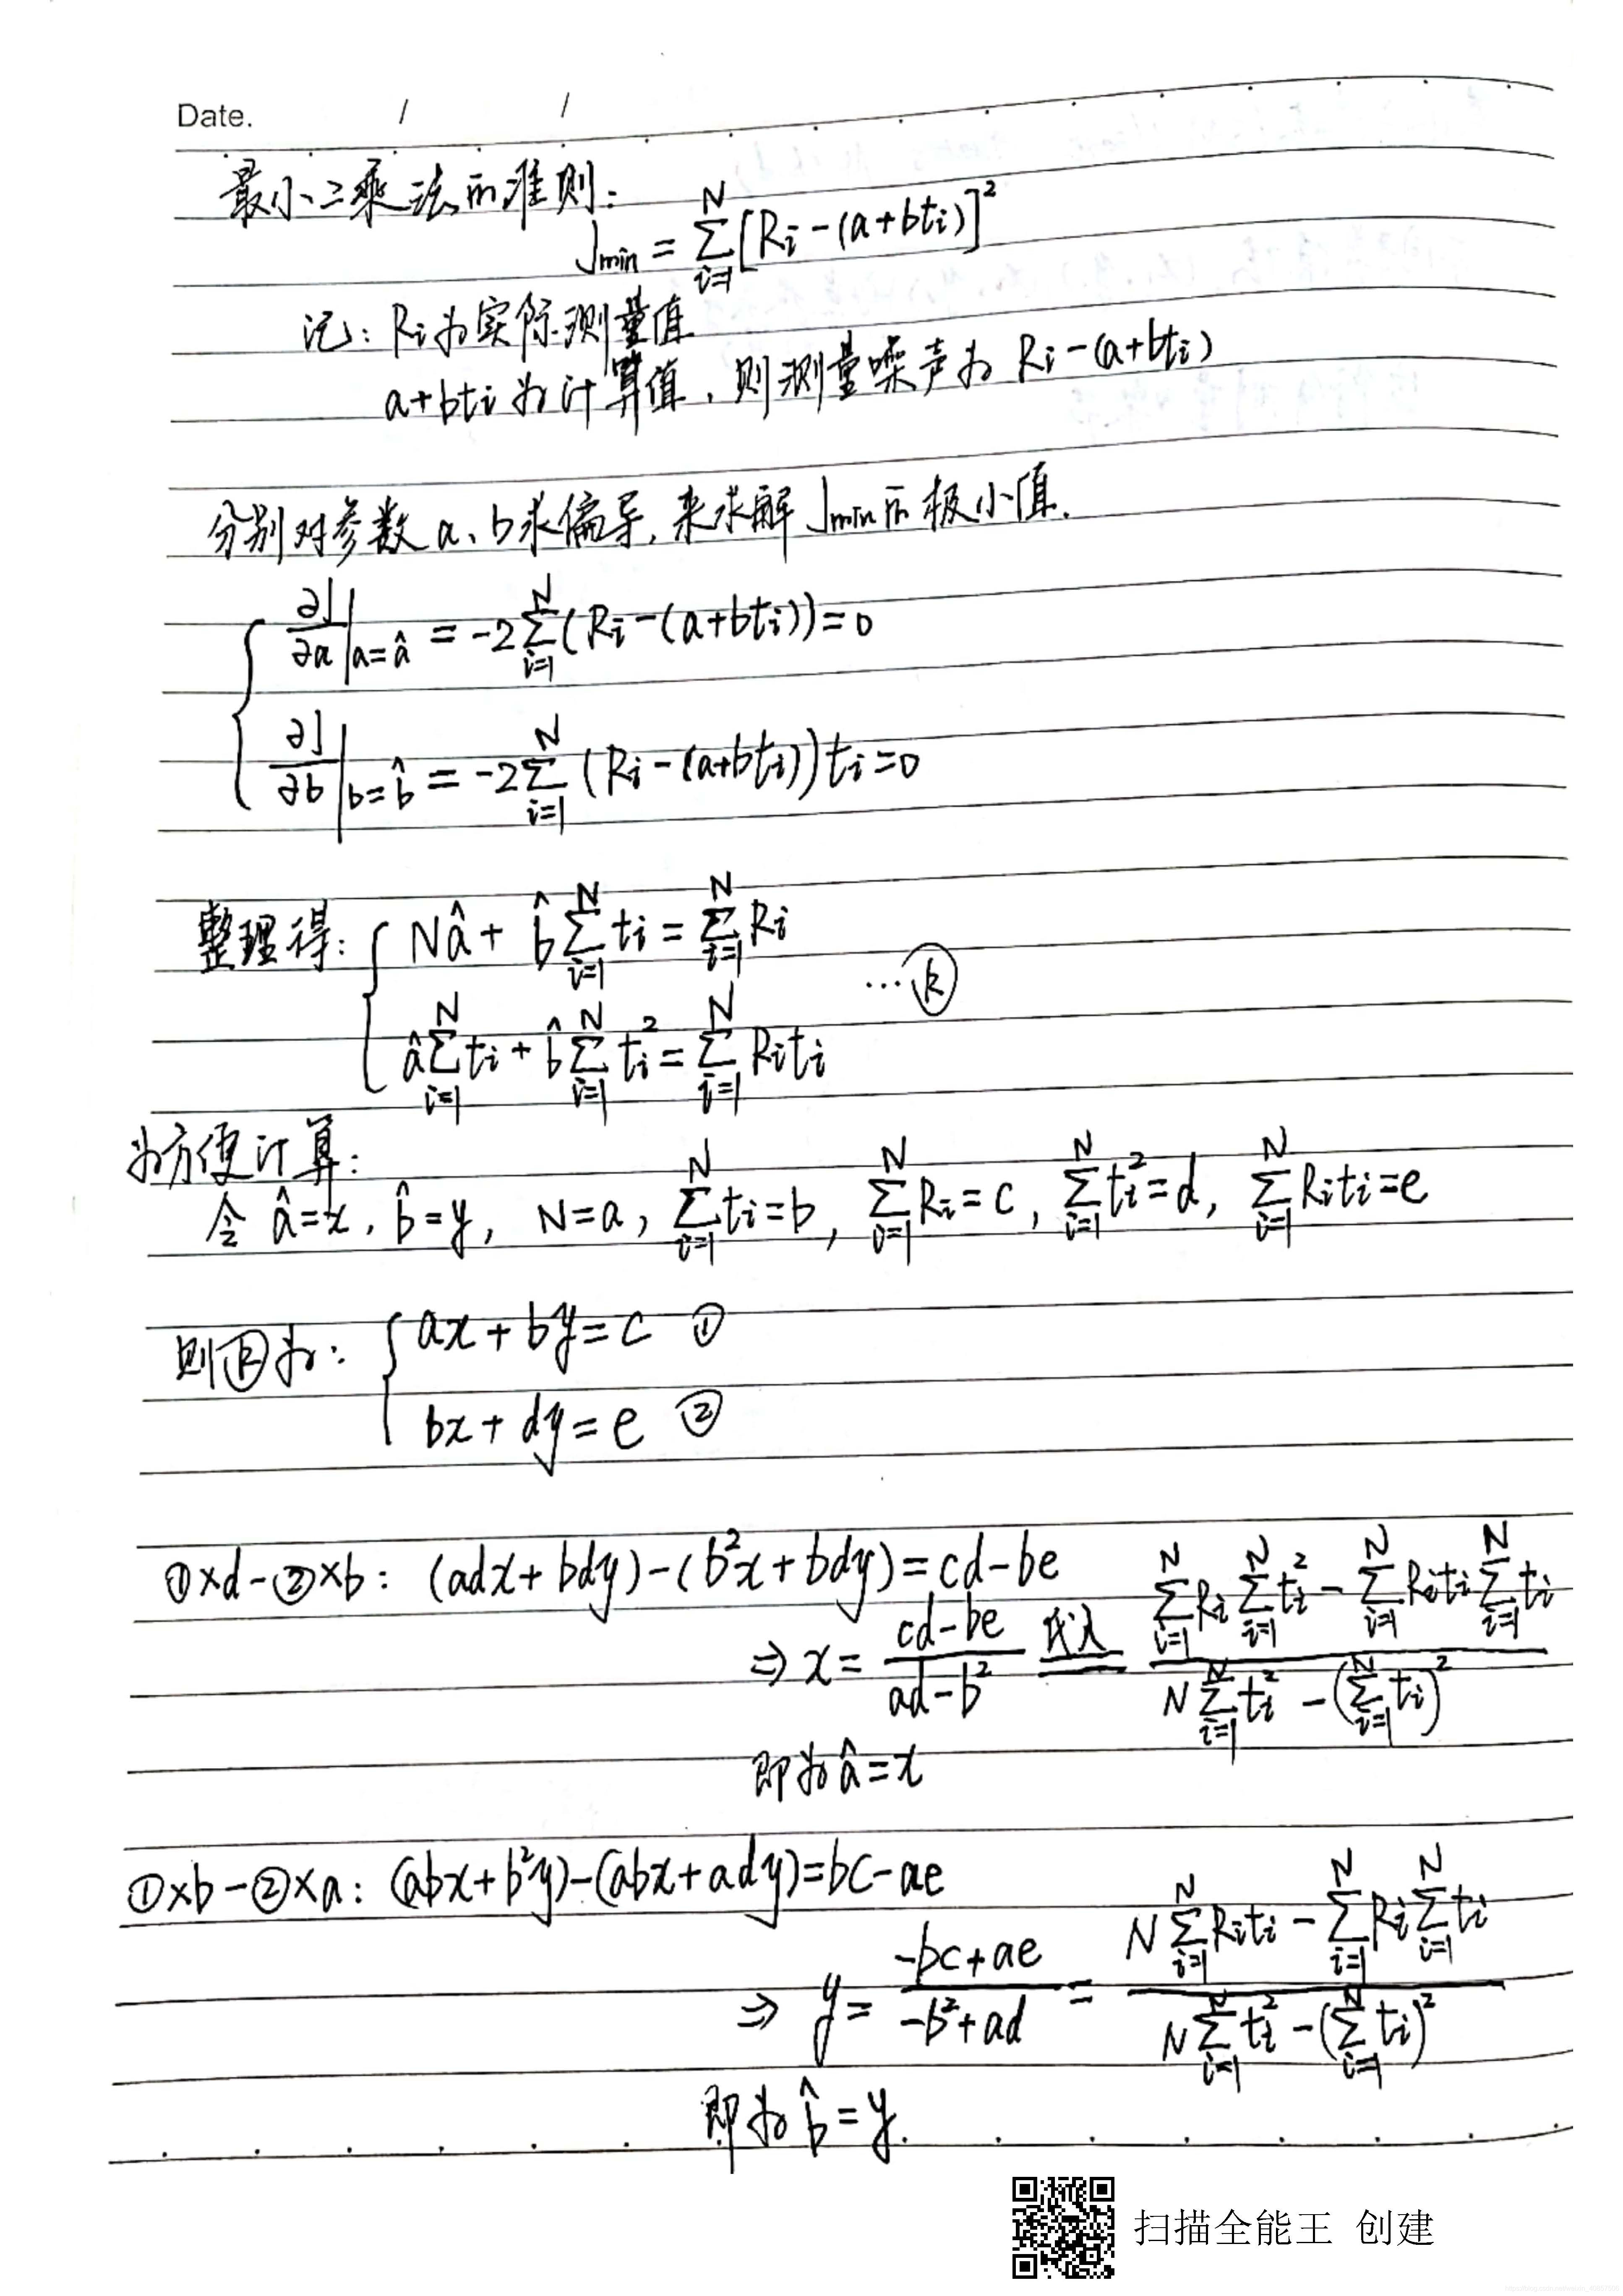 Date. / /
最小二乘法的准则:
Jmin = ∑_{i=1}^{N} [Ri - (a+bti)]²
记: Ri为实际测量值
a+bti 为计算值, 则测量噪声为 Ri-(a+bti)
分别对参数 a、b求偏导, 来求解 Jmin的极小值.
∂J/∂a |a=â = -2∑_{i=1}^{N} (Ri-(a+bti))=0
∂J/∂b |b=b̂ = -2∑_{i=1}^{N} (Ri-(a+bti))ti=0
整理得: { Nâ + b̂∑_{i=1}^{N} ti = ∑_{i=1}^{N} Ri
…ⓚ
â∑_{i=1}^{N} ti + b̂∑_{i=1}^{N} ti² = ∑_{i=1}^{N} Riti
为方便计算:
令 â=x, b̂=y, N=a, ∑_{i=1}^{N} ti=b, ∑_{i=1}^{N} Ri=c, ∑_{i=1}^{N} ti²=d, ∑_{i=1}^{N} Riti=e
则ⓚ为: { ax+by=c ①
bx+dy=e ②
①×d-②×b: (adx+bdy)-(b²x+bdy)=cd-be
⇒ x = (cd-be)/(ad-b²) 代入 (∑_{i=1}^{N} Ri ∑_{i=1}^{N} ti² - ∑_{i=1}^{N} Riti ∑_{i=1}^{N} ti)/(N∑_{i=1}^{N} ti² - (∑_{i=1}^{N} ti)²)
即为 â=x
①×b-②×a: (abx+b²y)-(abx+ady)=bc-ae
⇒ y = (-bc+ae)/(-b²+ad) = (N∑_{i=1}^{N} Riti - ∑_{i=1}^{N} Ri ∑_{i=1}^{N} ti)/(N∑_{i=1}^{N} ti² - (∑_{i=1}^{N} ti)²)
即为 b̂=y.
扫描全能王 创建